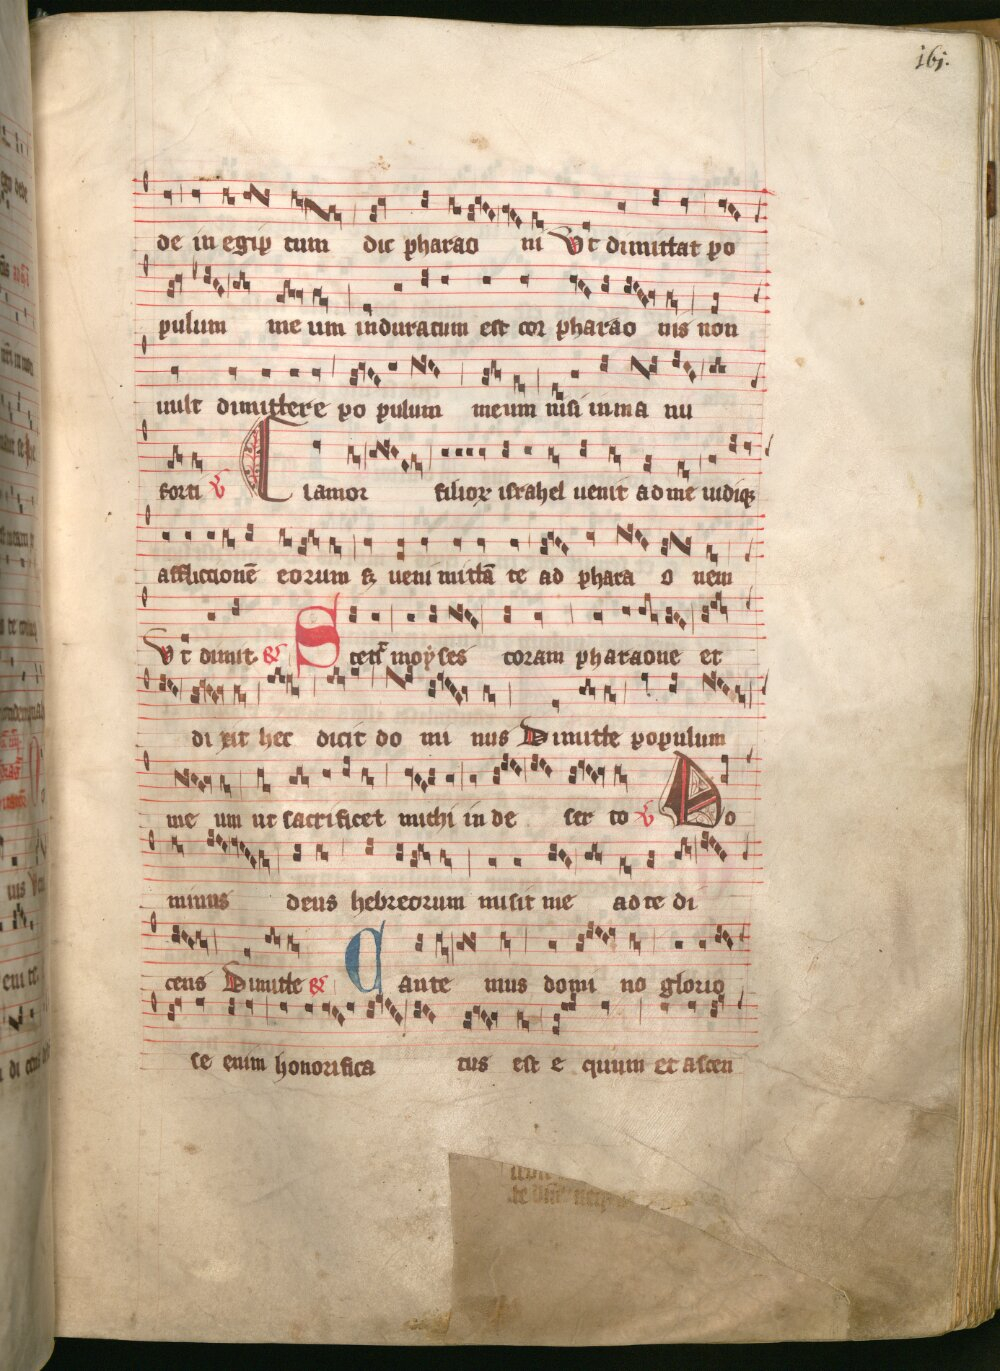 161.
de in egip tum dic pharao ni Vt dimittat po
pulum me um induratum est cor pharao nis non
uult dimittere po pulum meum nisi in ma nu
forti V Clamor filioꝝ israhel uenit ad me uidiqꝫ
afflictionē eorum sꝫ ueni mittā te ad phara o nem
Vt dimit R Stetit moẏses coram pharaone et
di xit hec dicit do mi nus Dimitte populum
me um ut sacrificet michi in de ser to V Do
minus deus hebreorum misit me ad te di
cens Dimitte R Cante mus domi no glorio
se enim honorifica tus est e quum et ascen